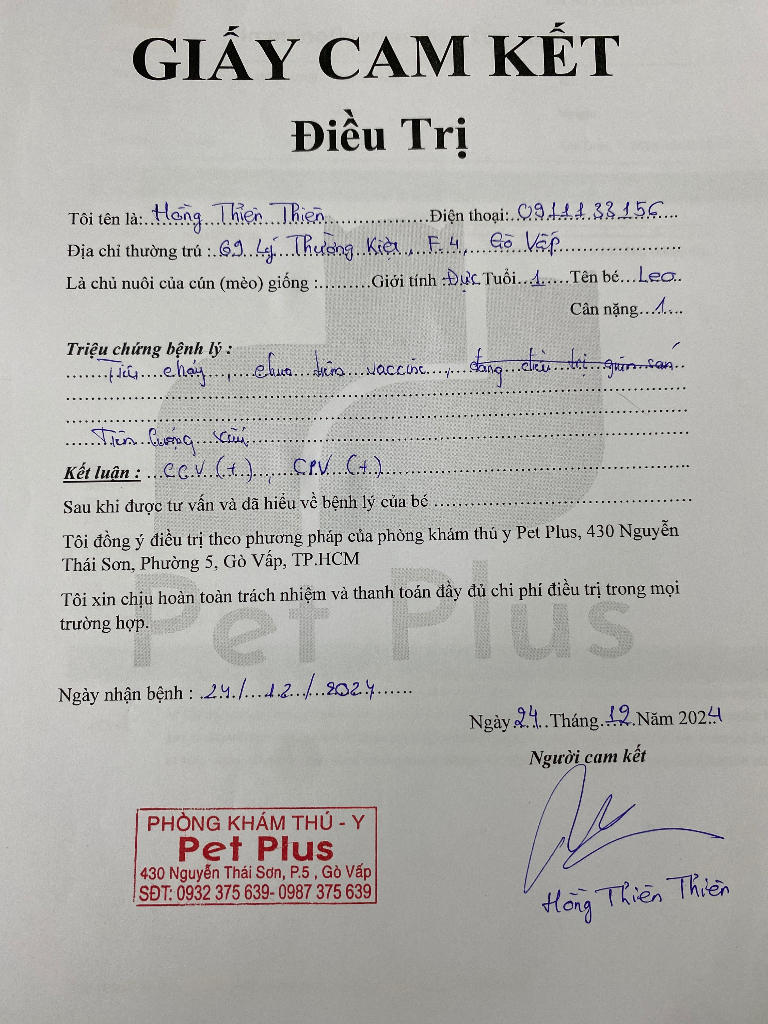 GIẤY CAM KẾT
Điều Trị
Tôi tên là: Hồng Thiên Thiên Điện thoại: 0911133156
Địa chỉ thường trú : 69 Lý Thường Kiệt, F.4, Gò Vấp
Là chủ nuôi của cún (mèo) giống :.........Giới tính : Đực Tuổi 1 Tên bé Leo
Cân nặng 1
Triệu chứng bệnh lý :
Tiêu chảy, chưa tiêm vaccine, đang điều trị giun sán
Tiên lượng xấu
Kết luận : CCV (+), CPV (+)
Sau khi được tư vấn và dã hiểu về bệnh lý của bé
Tôi đồng ý điều trị theo phương pháp của phòng khám thú y Pet Plus, 430 Nguyễn
Thái Sơn, Phường 5, Gò Vấp, TP.HCM
Tôi xin chịu hoàn toàn trách nhiệm và thanh toán đầy đủ chi phí điều trị trong mọi
trường hợp.
Pet Plus
Ngày nhận bệnh : 24/12/2024
Ngày 24 Tháng 12 Năm 2024
Người cam kết
PHÒNG KHÁM THÚ - Y
Pet Plus
430 Nguyễn Thái Sơn, P.5 , Gò Vấp
SĐT: 0932 375 639- 0987 375 639
Hồng Thiên Thiên